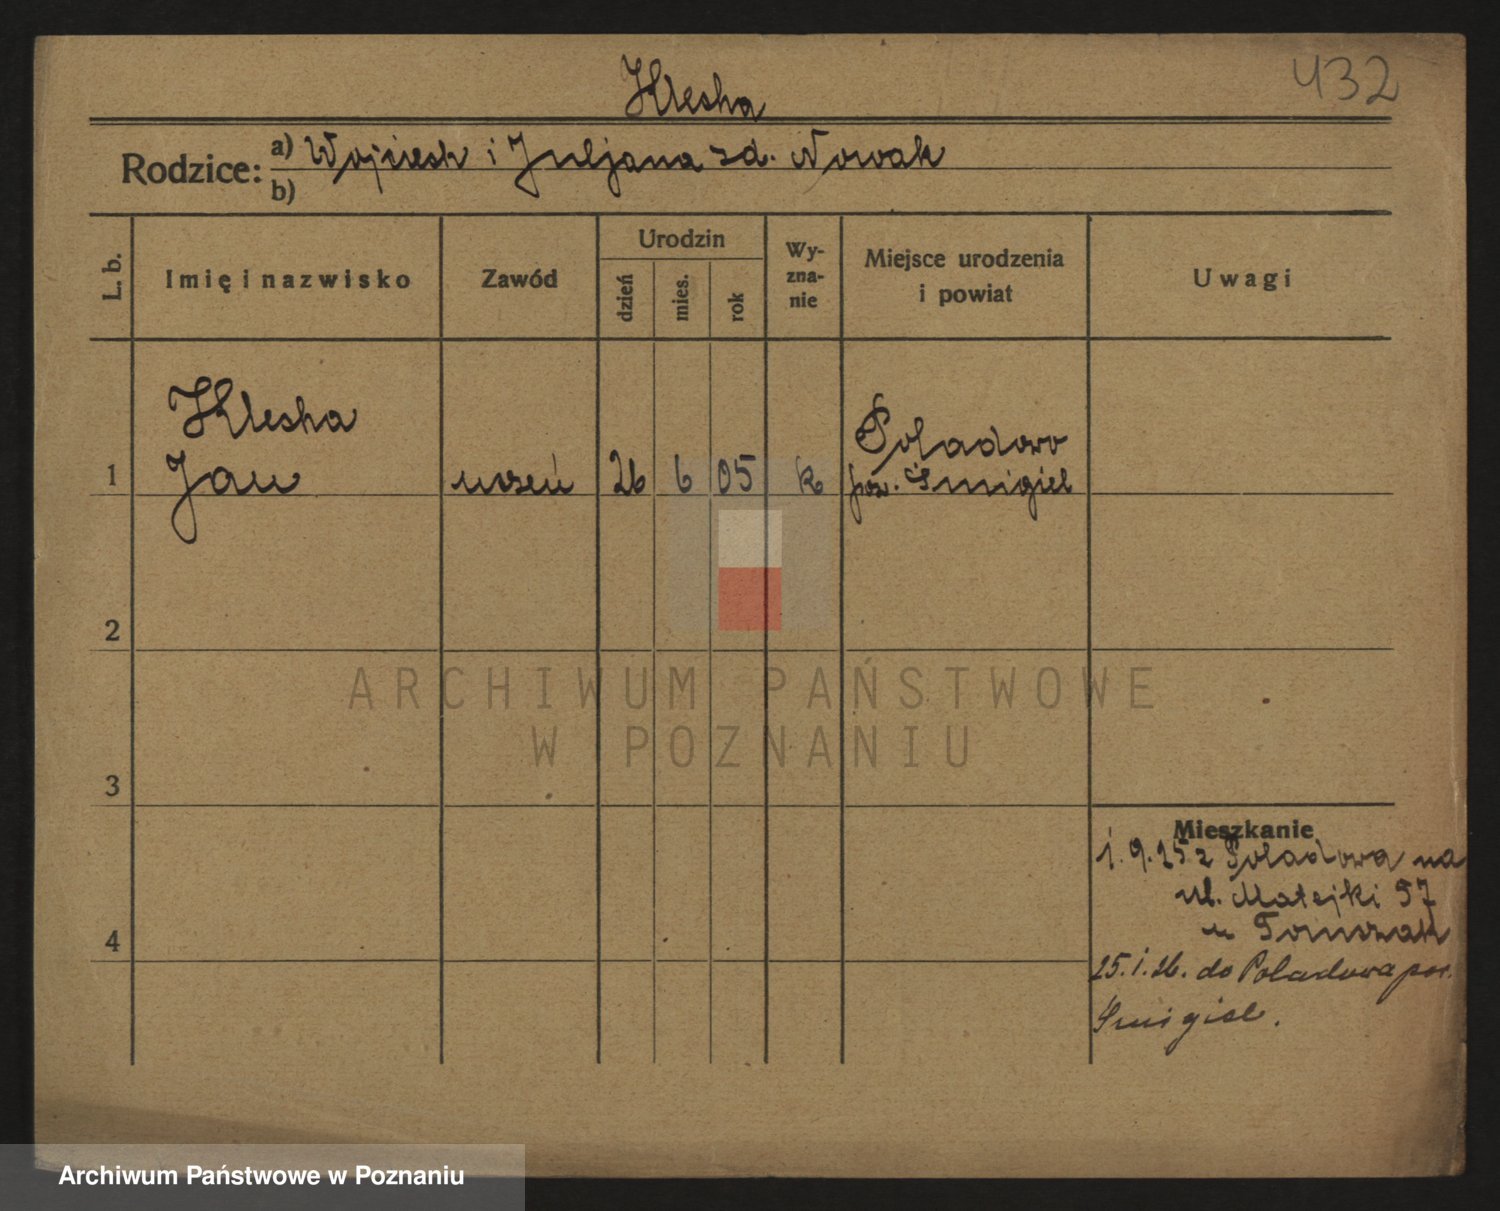 432
Kleska
Rodzice: a) Wojciech i Juljana zd. Nowak
b)
L. b.
Imię i nazwisko
Zawód
Urodzin
dzień
mies.
rok
Wy-
zna-
nie
Miejsce urodzenia
i powiat
Uwagi
Kleska
Jan
1
uczeń
26
6
05
k
Poladowo
pow. Śmigiel
2
3
4
Mieszkanie
1.9.25 z Poladowa na
ul. Matejki 57
u Tomczak
25.1.26. do Poladowa pow.
Śmigiel.
ARCHIWUM PAŃSTWOWE
W POZNANIU
Archiwum Państwowe w Poznaniu